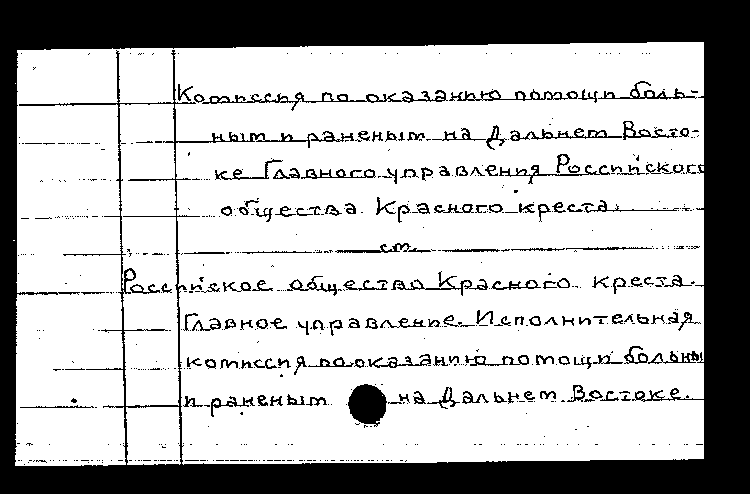 Комиссия по оказанию помощи боль-
ным и раненым на Дальнем Восто-
ке Главного управления Российского
общества Красного креста.
см.
Российское общество Красного креста.
Главное управление. Исполнительная
комиссия по оказанию помощи больны
и раненым на Дальнем Востоке.